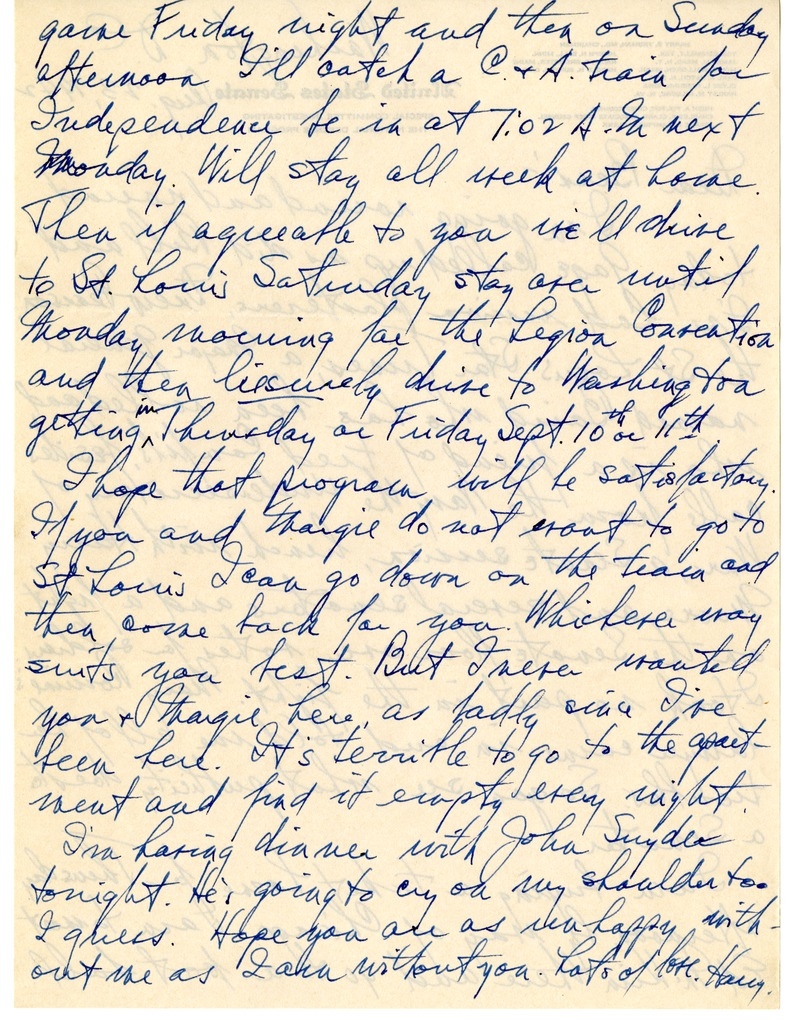 game Friday night and then on Sunday
afternoon I'll catch a C. & A. train for
Independence be in at 7:02 A.M. next
Monday. Will stay all week at home.
Then if agreeable to you we'll drive
to St. Louis Saturday stay over until
Monday morning for the Legion Convention
and then liesurely drive to Washington
getting in Thursday or Friday Sept. 10th or 11th.
I hope that program will be satisfactory.
If you and Margie do not want to go to
St Louis I can go down on the train and
then come back for you. Whichever way
suits you best. But I never wanted
you & Margie here, as badly since I've
been here. It's terrible to go to the apart-
ment and find it empty every night.
I'm having dinner with John Snyder
tonight. He's going to cry on my shoulder too
I guess. Hope you are as unhappy with-
out me as I am without you. Lots of love. Harry.